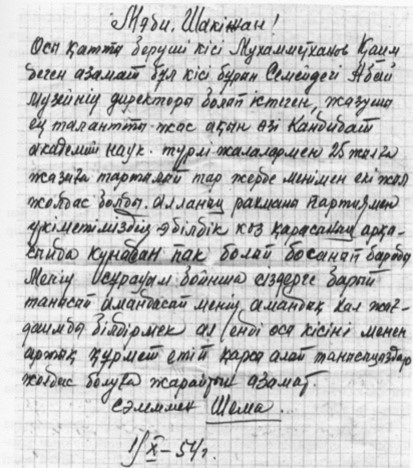 Мәди, Шакіжан!
Осы қатты беруші кісі Мухамметханов Қаим
деген азамат бұл кісі бұрын Семейдегі Абай
музейінің директоры болып істеген, жазушы
ең талантты жас ақын өзі Кандидат
академии наук. түрлі жалалармен 25 жылға
жазыға тартылып тар жерде менімен екі жыл
жолдас болды. алланың рақмыны партия мен
үкіметіміздің әділдік көз қарасының арқа-
сында күнәдан пак болып босанып барады
Менің осурауым бойнша сіздерге барып
танысып амандасып менің амандық хал жағ-
дайымды білдірмек ал енді осы кісіні менен
артық құрмет етіп қарсы алып танысыңыздар
жолдас болуға жарайтын азамат.
сәлеммен Шома.
1/X–54г.